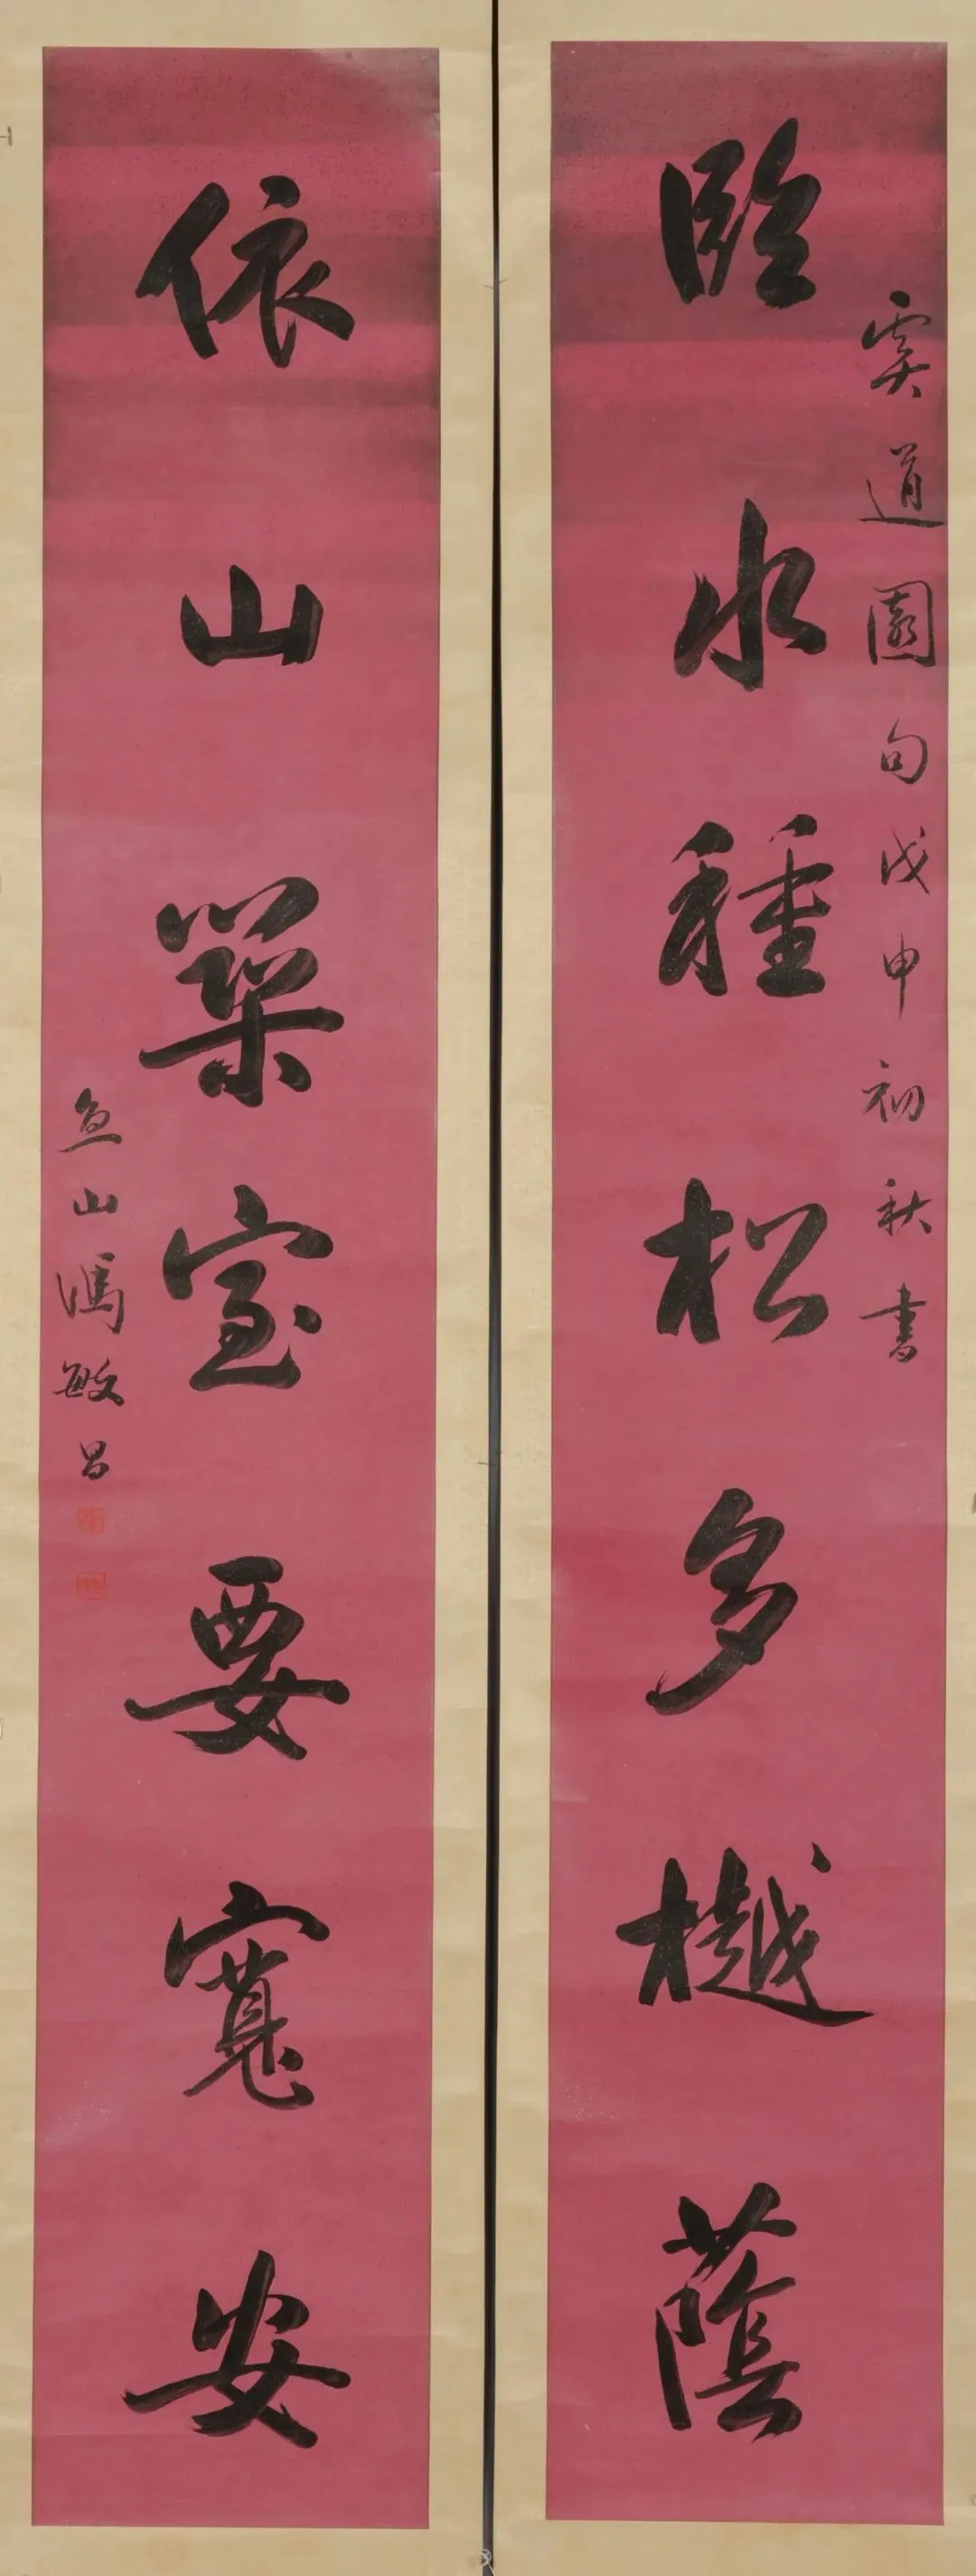 虞道園句戊申初秋書
臨水種松多樾蔭
依山築室要寬安
魚山馮敏昌